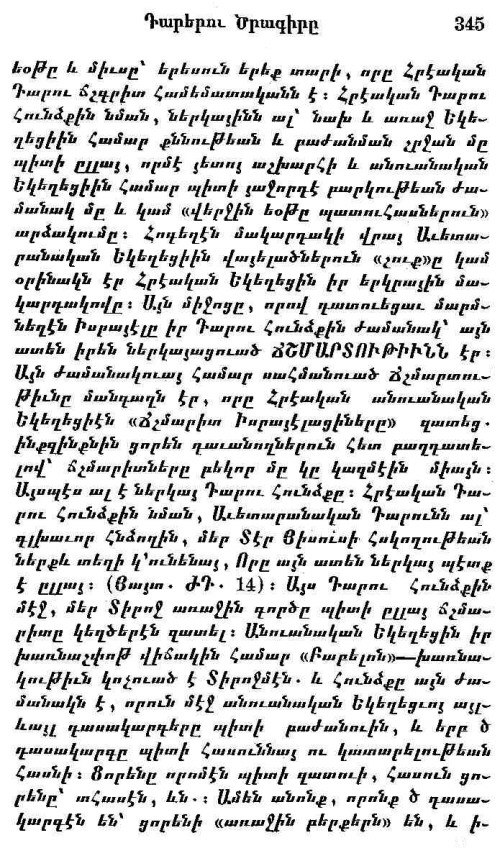 Դարերու Ծրագիրը 345
եօթը և միւսը՝ երեսուն երեք տարի, որը Հրէական
Դարու ճշգրիտ Համեմատականն է։ Հրէական Դարու
Հունձքին նման, ներկայինն ալ՝ նախ և առաջ Եկե-
ղեցիին Համար քննութեան և բաժանման շրջան մը
պիտի ըլլայ, որմէ յետոյ աշխարհի և անուանական
Եկեղեցիին Համար պիտի յաջորդէ բարկութեան ժա-
մանակ մը և կամ «վերջին եօթը պատուհասներուն»
արձակումը։ Հոգեղէն մակարդակի վրայ Աւետա-
րանական Եկեղեցիին վայելածներուն «շուք»ը կամ
օրինակն էր Հրէական Եկեղեցին իր երկրային մա-
կարդակովը։ Այն միջոցը, որով դատուեցաւ մարմ-
նեղէն Իսրայէլը իր Դարու Հունձքին ժամանակ՝ այն
ատեն իրեն ներկայացուած ՃՇՄԱՐՏՈՒԹԻՒՆՆ էր։
Այն ժամանակուայ Համար սահմանուած Ճշմարտու-
թիւնը մանգաղն էր, որը Հրէական անուանական
Եկեղեցիէն «Ճշմարիտ Իսրայէլացիները» զատեց․
ինքզինքնին ցորեն դաւանողներուն Հետ բաղդատե-
լով՝ ճշմարիտները բեկոր մը կը կազմէին միայն։
Այսպէս ալ է ներկայ Դարու Հունձքը։ Հրէական Դա-
րու Հունձքին նման, Աւետարանական Դարունն ալ՝
գլխաւոր Հնձողին, մեր Տէր Յիսուսի Հսկողութեան
ներքև տեղի կ՚ունենայ, Որը այն ատեն ներկայ պէտք
է ըլլայ։ (Յայտ․ ԺԴ․ 14)։ Այս Դարու Հունձքին
մէջ, մեր Տիրոջ առաջին գործը պիտի ըլլայ ճշմա-
րիտը կեղծերէն զատել։ Անուանական Եկեղեցին իր
խառնաշփոթ վիճակին Համար «Բաբելոն»—խառնա-
կութիւն կոչուած է Տիրոջմէն․ և Հունձքը այն ժա-
մանակն է, որուն մէջ անուանական Եկեղեցւոյ այլ-
ևայլ դասակարդերը պիտի բաժանուին, և երբ ծ
դասակարգը պիտի Հասուննայ ու կատարելութեան
Հասնի։ Ցորենը որոմէն պիտի զատուի, Հասուն ցո-
րենը՝ տհասէն, ևն․։ Ամեն անոնք, որոնք ծ դասա-
կարգէն են՝ ցորենի «առաջին բերքերն» են, և ի-